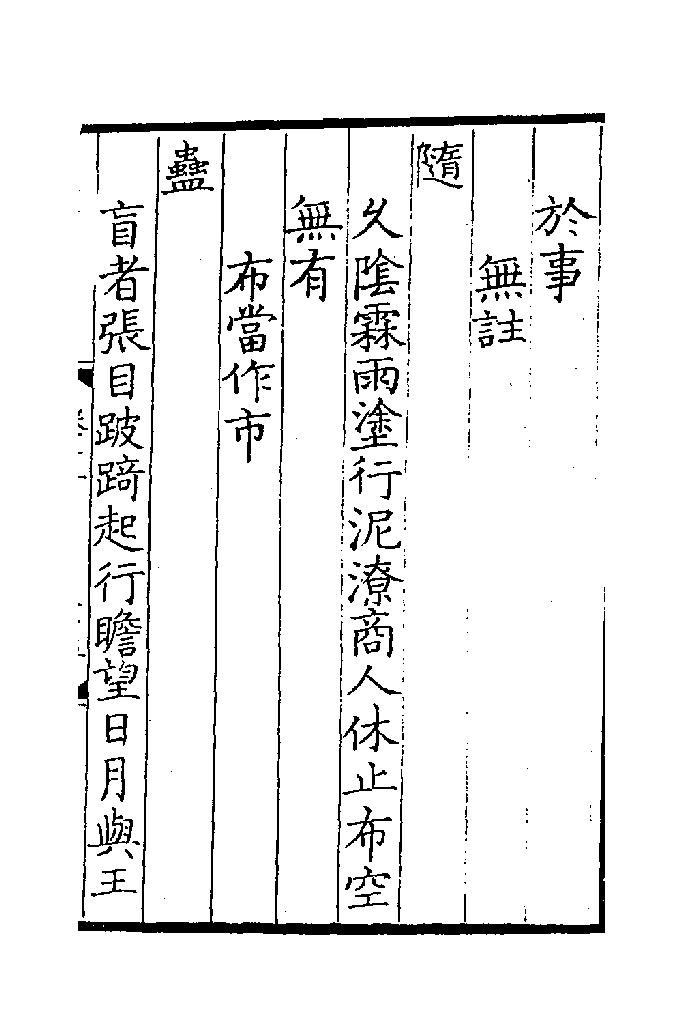 於事
無註
隨
久陰霖雨塗行泥潦商人休止布空
無有
布當作市
蠱
盲者張目跛踦起行瞻望日月與王